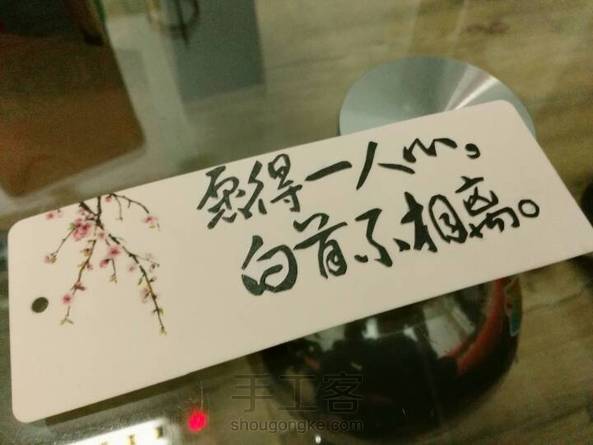 愿得一人心，
白首不相离。
手工客
shougongke.com